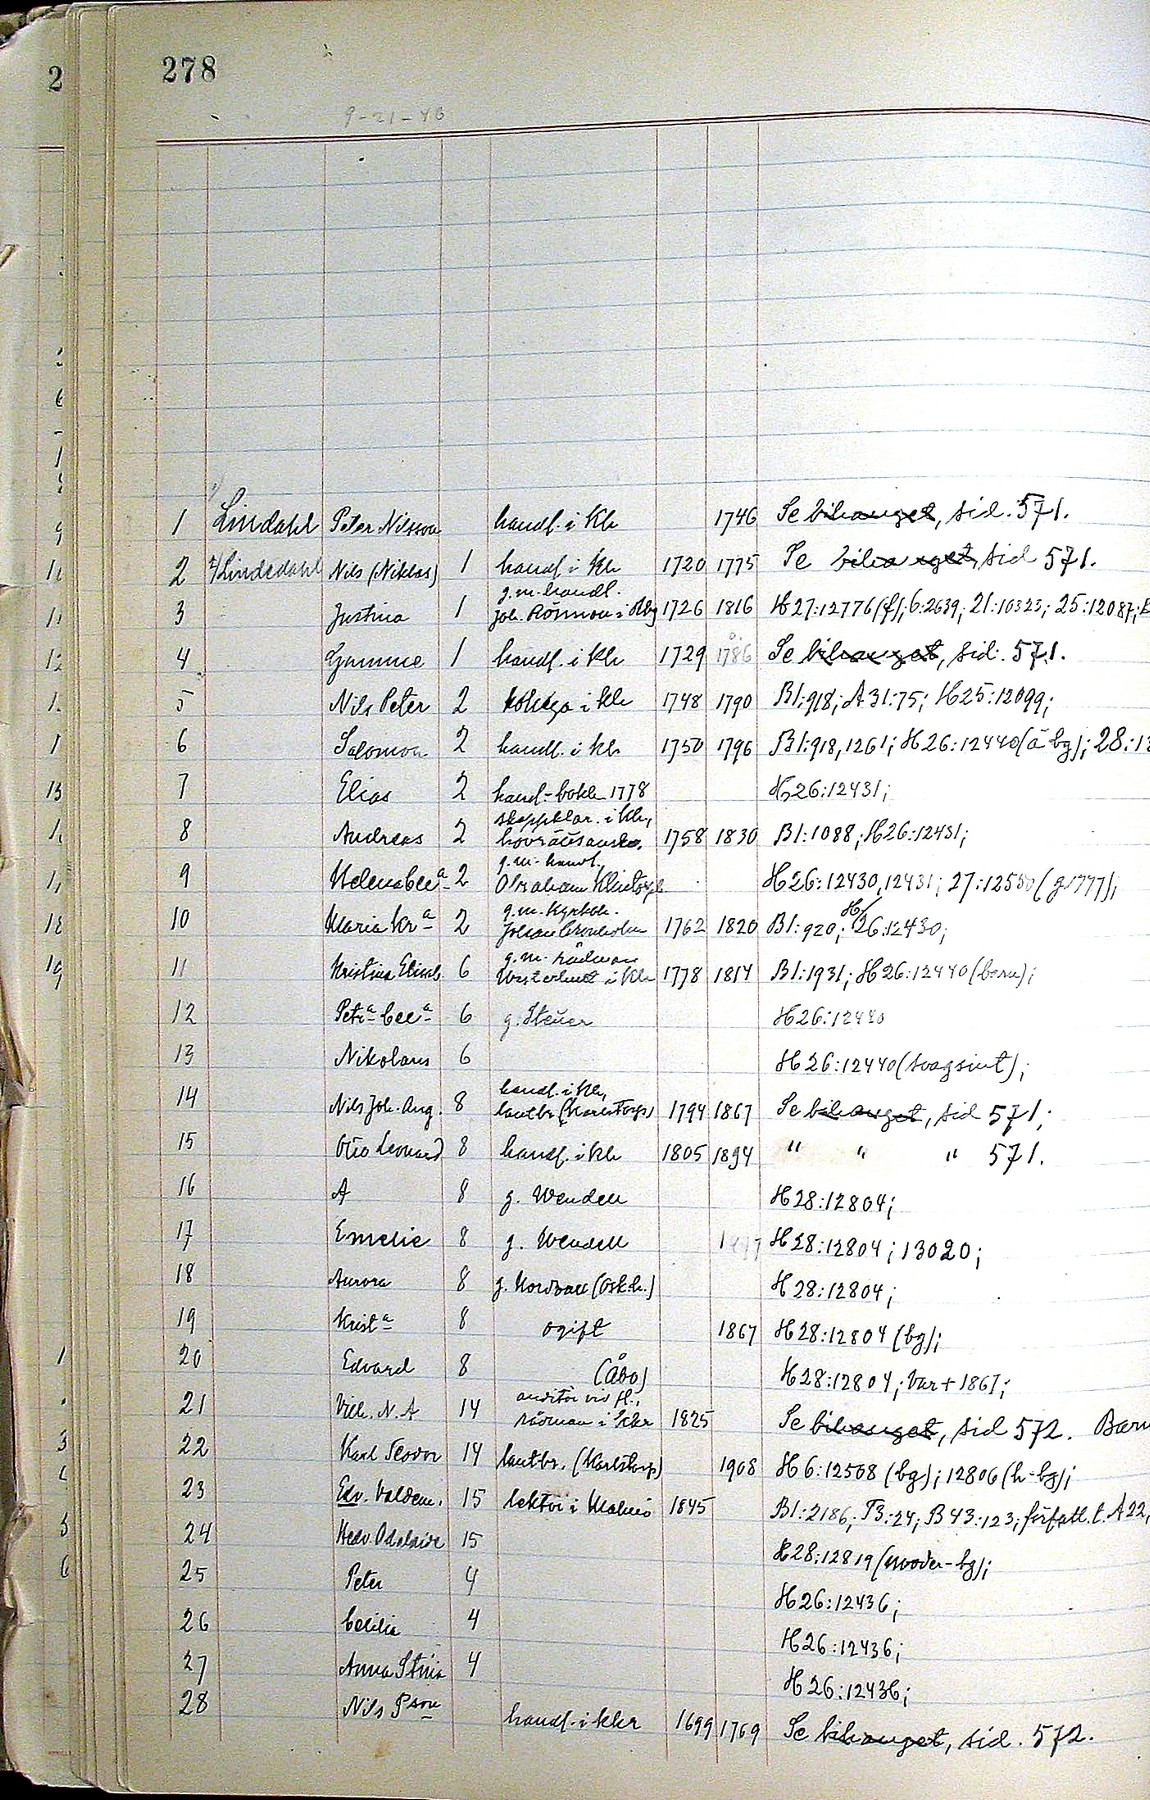 278
9-21-46
1 1/ Lindahl Peter Nilsson handl. i Khr 1746 Se bihanget, sid. 571.
2 2/ Lindedahl Nils (Niklas) 1 handl. i Khr 1720 1775 Se bihanget, sid 571.
g.m. handl.
3 Justina 1 Joh. Rönnow i Kbg 1726 1816 H27:12776(f); 6:2639; 21:10323; 25:12087;
4 Gumme 1 handl. i Khr 1729 1786 Se bihanget, sid. 571.
5 Nils Peter 2 kollega i Khr 1748 1790 B1:918; A31:75; H25:12099;
6 Salomon 2 handl. i Khr 1750 1796 B1:918, 1261; H26:12440(å bg); 28:
7 Elias 2 handl.-bokh. 1778 H26:12431;
skeppsklar. i Khr,
8 Andreas 2 1758 1830 B1:1088; H26:12431;
g.m. handl.
9 Helena Cec:a 2 Abraham H26:12430, 12431; 27:12550 (g. 1777);
g.m. kyrkoh.
10 Maria Kr:a 2 Johan Cronholm 1762 1820 B1:920; H26:12430;
g.m. rådman
11 Kristina Elisab. 6 Westerlund i Khr 1778 1814 B1:1931; H26:12440 (barn);
12 Petr:a Cec:a 6 g. Steuer H26:12440
13 Nikolaus 6 H26:12440 (svagsint);
handl. i Khr,
14 Nils Joh. Aug. 8 lantbr. (Karlstorp) 1794 1867 Se bihanget, sid 571;
15 Otto Leonard 8 handl. i Khr 1805 1894 " " " 571.
16 A 8 g. Wendell H28:12804;
17 Emelie 8 g. Wendell H28:12804; 13020;
18 Aurora 8 g. Nordvall (Osk.h.) H28:12804;
19 Krist:a 8 ogift 1867 H28:12804 (bg);
20 Edvard 8 (Åbo) H28:12804; var + 1867;
auditör vid fl.,
21 Vilh. N. A 14 rådman i Kkr 1825 Se bihanget, sid 572. Barn
22 Karl Teodor 14 lantbr. (Karlstorp) 1908 H6:12508 (bg); 12806 (h-bg);
23 Edv. Valdem. 15 lektor i Malmö 1845 B1:2186; B:24; B43:123; författ. t. A22,
24 Hedv. Adelaide 15 H28:12819 (moder-bg);
25 Peter 4 H26:12436;
26 Cecilia 4 H26:12436;
27 Anna Stina 4 H26:12436;
28 Nils Pson handl. i Kkr 1699 1769 Se bihanget, sid. 572.